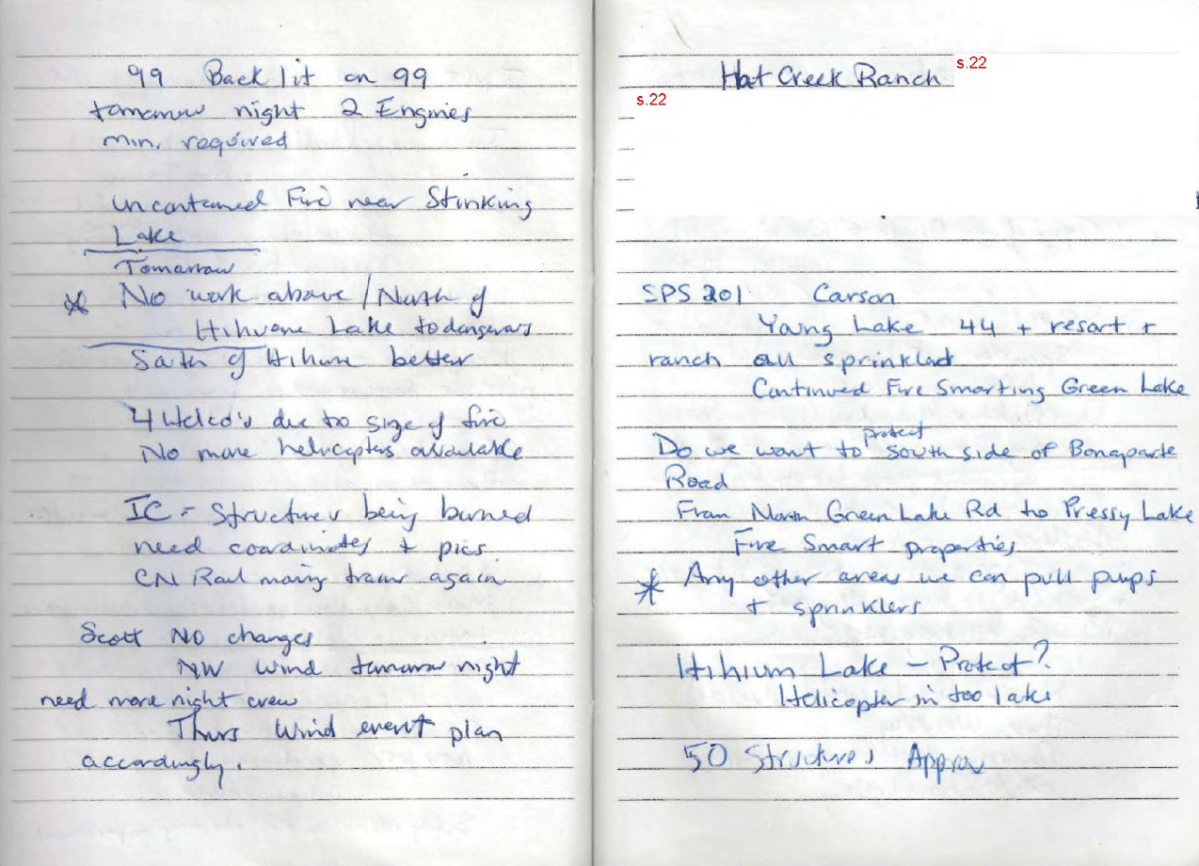 99 Back lit on 99
tomorrow night 2 Engines
min. required
uncontained Fire near Stinking
Lake
Tomorrow
* No work above / North of
Hihume Lake to dangerous
South of Hihume better
4 Helco's due to size of fire
No more helicopters available
IC - Structures being burned
need coordinates + pics
CN Rail moving trains again
Scott No changes
NW wind tomorrow night
need more night crew
Thurs Wind event plan
accordingly.
Hat Creek Ranch s.22
s.22
SPS 201 Carson
Young Lake 44 + resort +
ranch all sprinkled
Continued Fire Smarting Green Lake
protect
Do we want to south side of Bonaparte
Road
From North Green Lake Rd to Pressy Lake
Fire Smart properties
* Any other areas we can pull pups
+ sprinklers
Hihium Lake - Protect?
Helicopter in too lake
50 Structures Approx